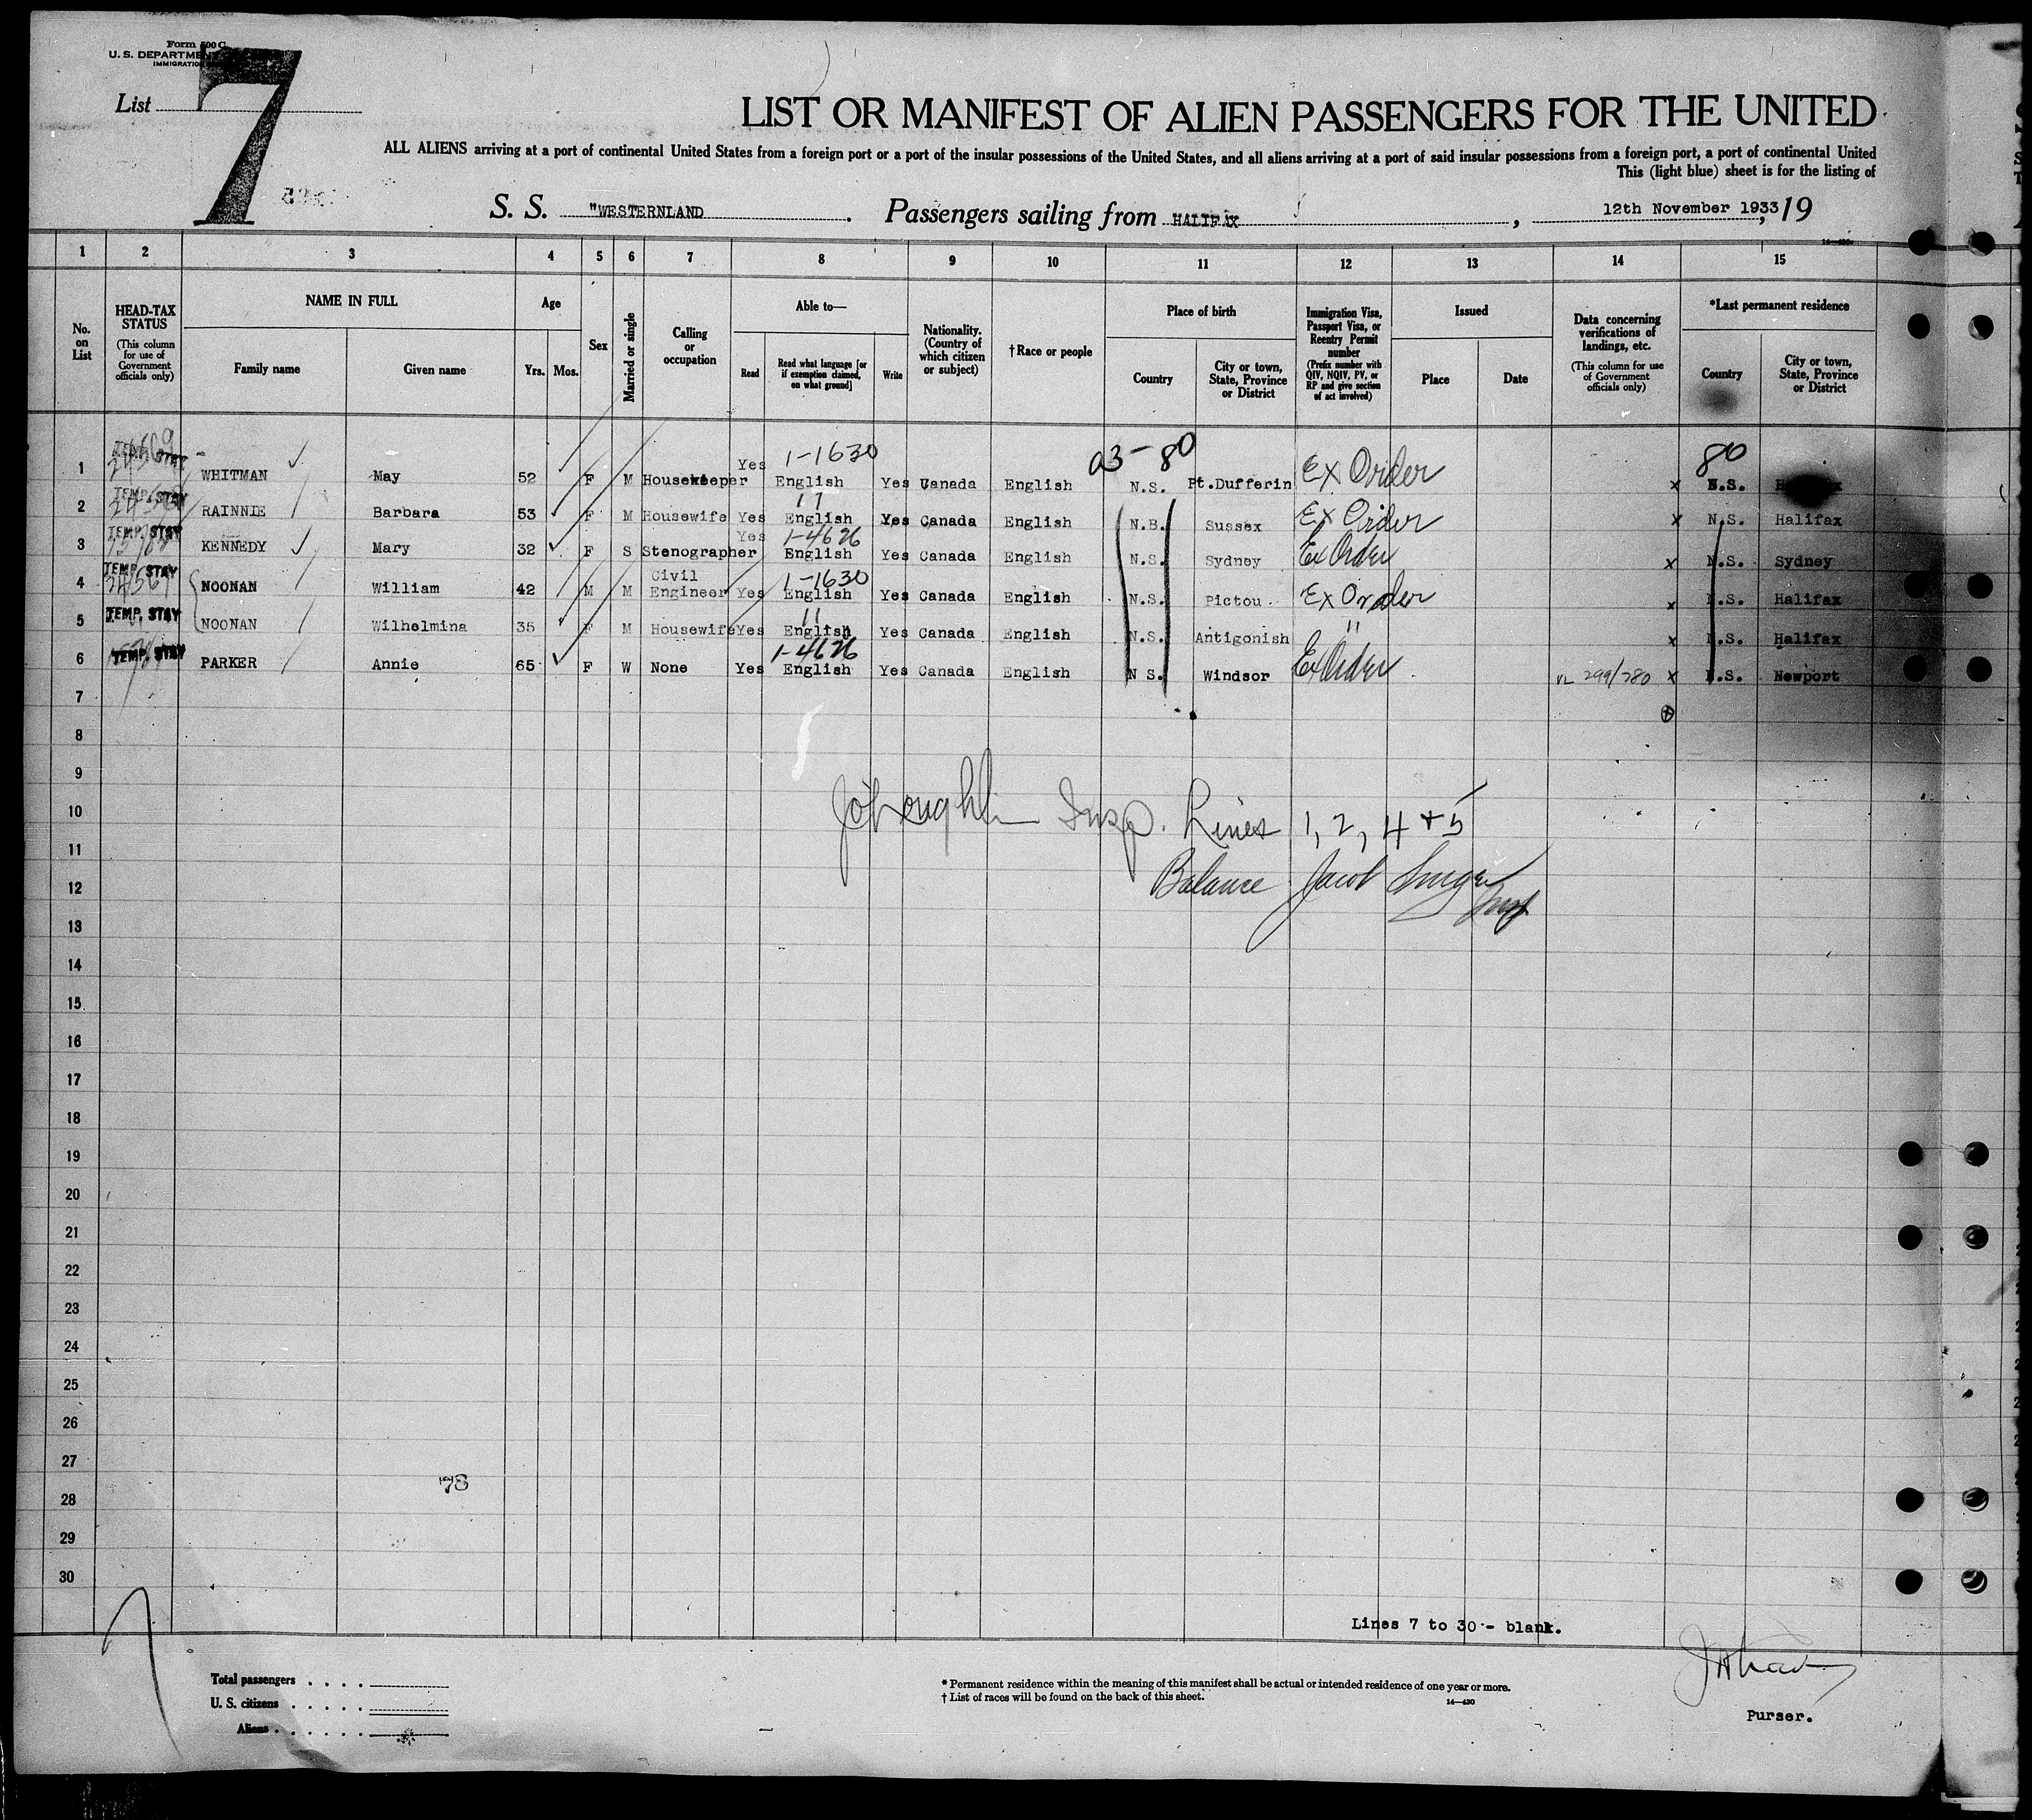 Form 500 C
U. S. DEPARTMENT
IMMIGRATION
List
7
LIST OR MANIFEST OF ALIEN PASSENGERS FOR THE UNITED
ALL ALIENS arriving at a port of continental United States from a foreign port or a port of the insular possessions of the United States, and all aliens arriving at a port of said insular possessions from a foreign port, a port of continental United
This (light blue) sheet is for the listing of
S. S. "WESTERNLAND. Passengers sailing from HALIFAX, 12th November 1933, 19
14—430
1 2 3 4 5 6 7 8 9 10 11 12 13 14 15
No. on List
HEAD-TAX STATUS (This column for use of Government officials only)
NAME IN FULL
Family name Given name
Age
Yrs. Mos.
Sex
Married or single
Calling or occupation
Able to—
Read Read what language [or if exemption claimed, on what ground] Write
Nationality. (Country of which citizen or subject)
†Race or people
Place of birth
Country City or town, State, Province or District
Immigration Visa, Passport Visa, or Reentry Permit number (Prefix number with QIV, NQIV, PV, or RP and give section of act involved)
Issued
Place Date
Data concerning verifications of landings, etc. (This column for use of Government officials only)
*Last permanent residence
Country City or town, State, Province or District
1-1630 03-80 80
1 WHITMAN May 52 F M Housekeeper Yes English Yes Canada English N.S. Pt.Dufferin Ex Order x N.S.
11
2 TEMP. STAY RAINNIE Barbara 53 F M Housewife Yes English Yes Canada English N.B. Sussex Ex Order x N.S. Halifax
1-4626
3 TEMP. STAY KENNEDY Mary 32 F S Stenographer Yes English Yes Canada English N.S. Sydney Ex Order x N.S. Sydney
1-1630
4 TEMP. STAY NOONAN William 42 M M Civil Engineer Yes English Yes Canada English N.S. Pictou Ex Order x N.S. Halifax
11
5 TEMP. STAY NOONAN Wilhelmina 35 F M Housewife Yes English Yes Canada English N.S. Antigonish " x N.S. Halifax
1-4626
6 TEMP. STAY PARKER Annie 65 F W None Yes English Yes Canada English N S. Windsor Ex Order VL 299/780 x N.S. Newport
7
8
9
10 J O'Loughlin Insp. Lines 1, 2, 4 + 5
11
12 Balance Jacob Insp
13
14
15
16
17
18
19
20
21
22
23
24
25
26
27
78
28
29
30
Lines 7 to 30 - blank.
Total passengers
U. S. citizens
Aliens
* Permanent residence within the meaning of this manifest shall be actual or intended residence of one year or more.
† List of races will be found on the back of this sheet.
14—430
Purser.